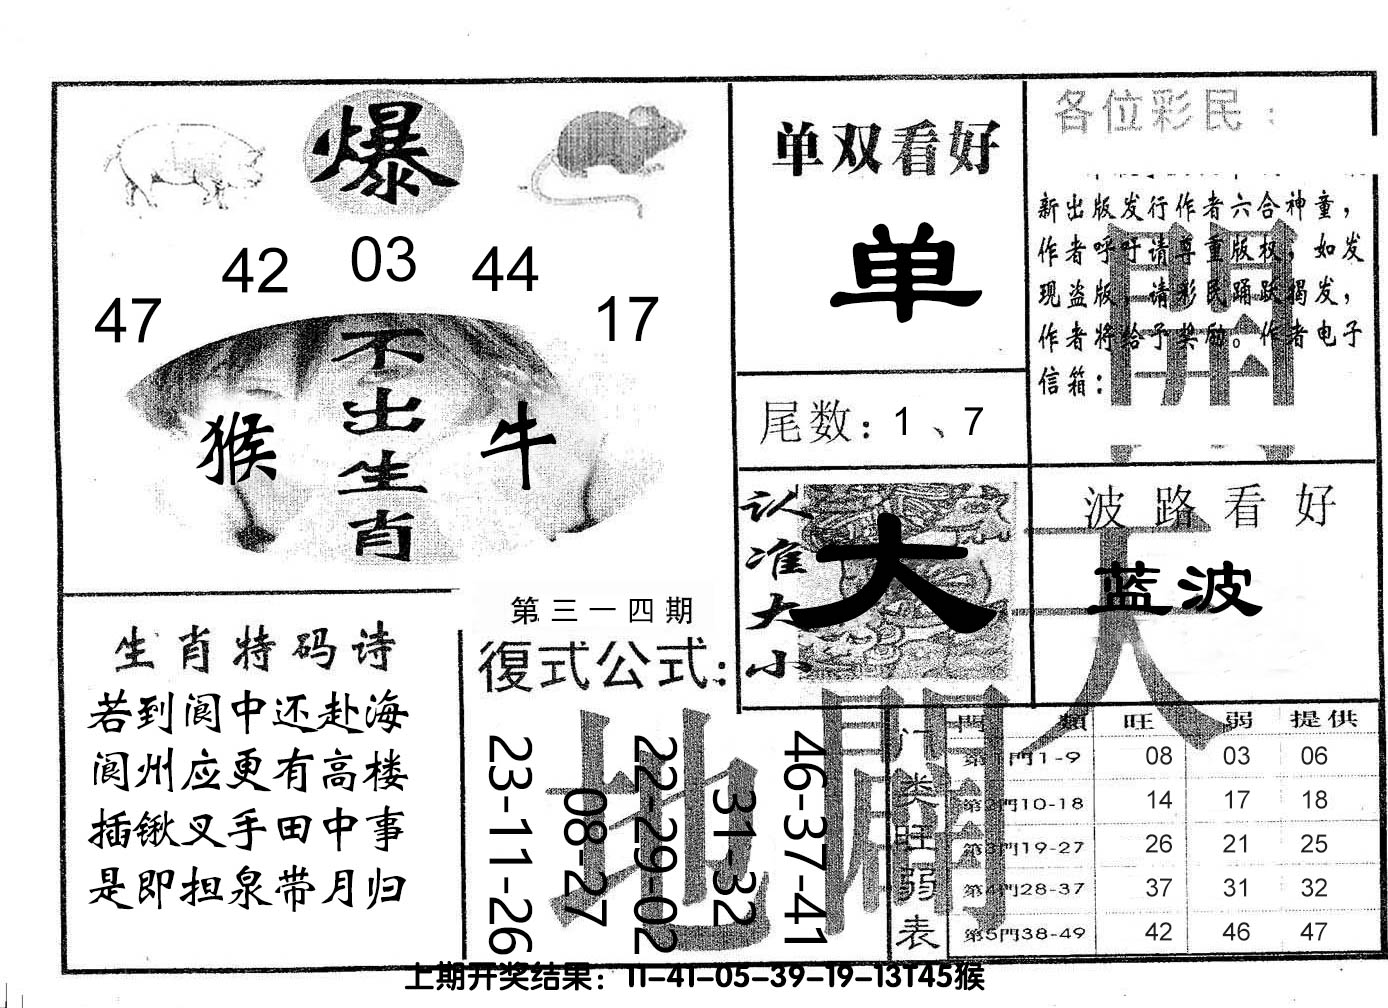 爆
42 03 44
47 17
不出生肖
猴 牛
单双看好
单
尾数：1、7
各位彩民：
新出版发行作者六合神童，
作者呼吁请尊重版权，如发
现盗版，请彩民踊跃揭发，
作者将给予奖励。作者电子
信箱：
開
认准大小
大
波路看好
蓝波
天
生肖特码诗
若到阆中还赴海
阆州应更有高楼
插锹叉手田中事
是即担泉带月归
第三一四期
復式公式：
23-11-26
08-27
22-29-02
31-32
46-37-41
地
門类旺弱表
門類 旺 弱 提供
第1門1-9 08 03 06
第2門10-18 14 17 18
第3門19-27 26 21 25
第4門28-37 37 31 32
第5門38-49 42 46 47
上期开奖结果：11-41-05-39-19-13T45猴